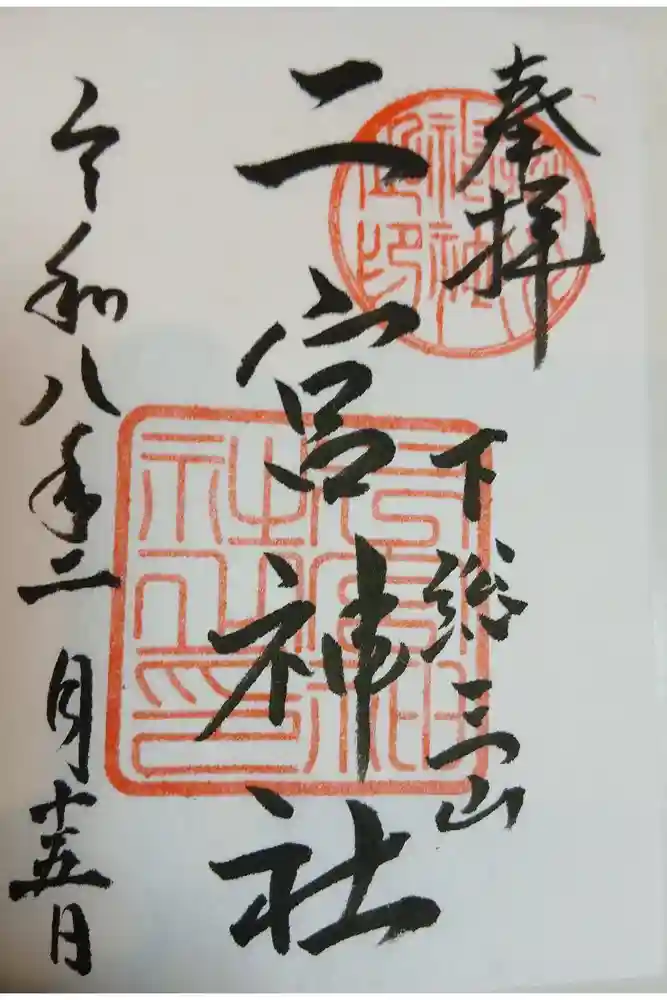 奉拝
下総三山
二宮神社
令和八年二月十五日